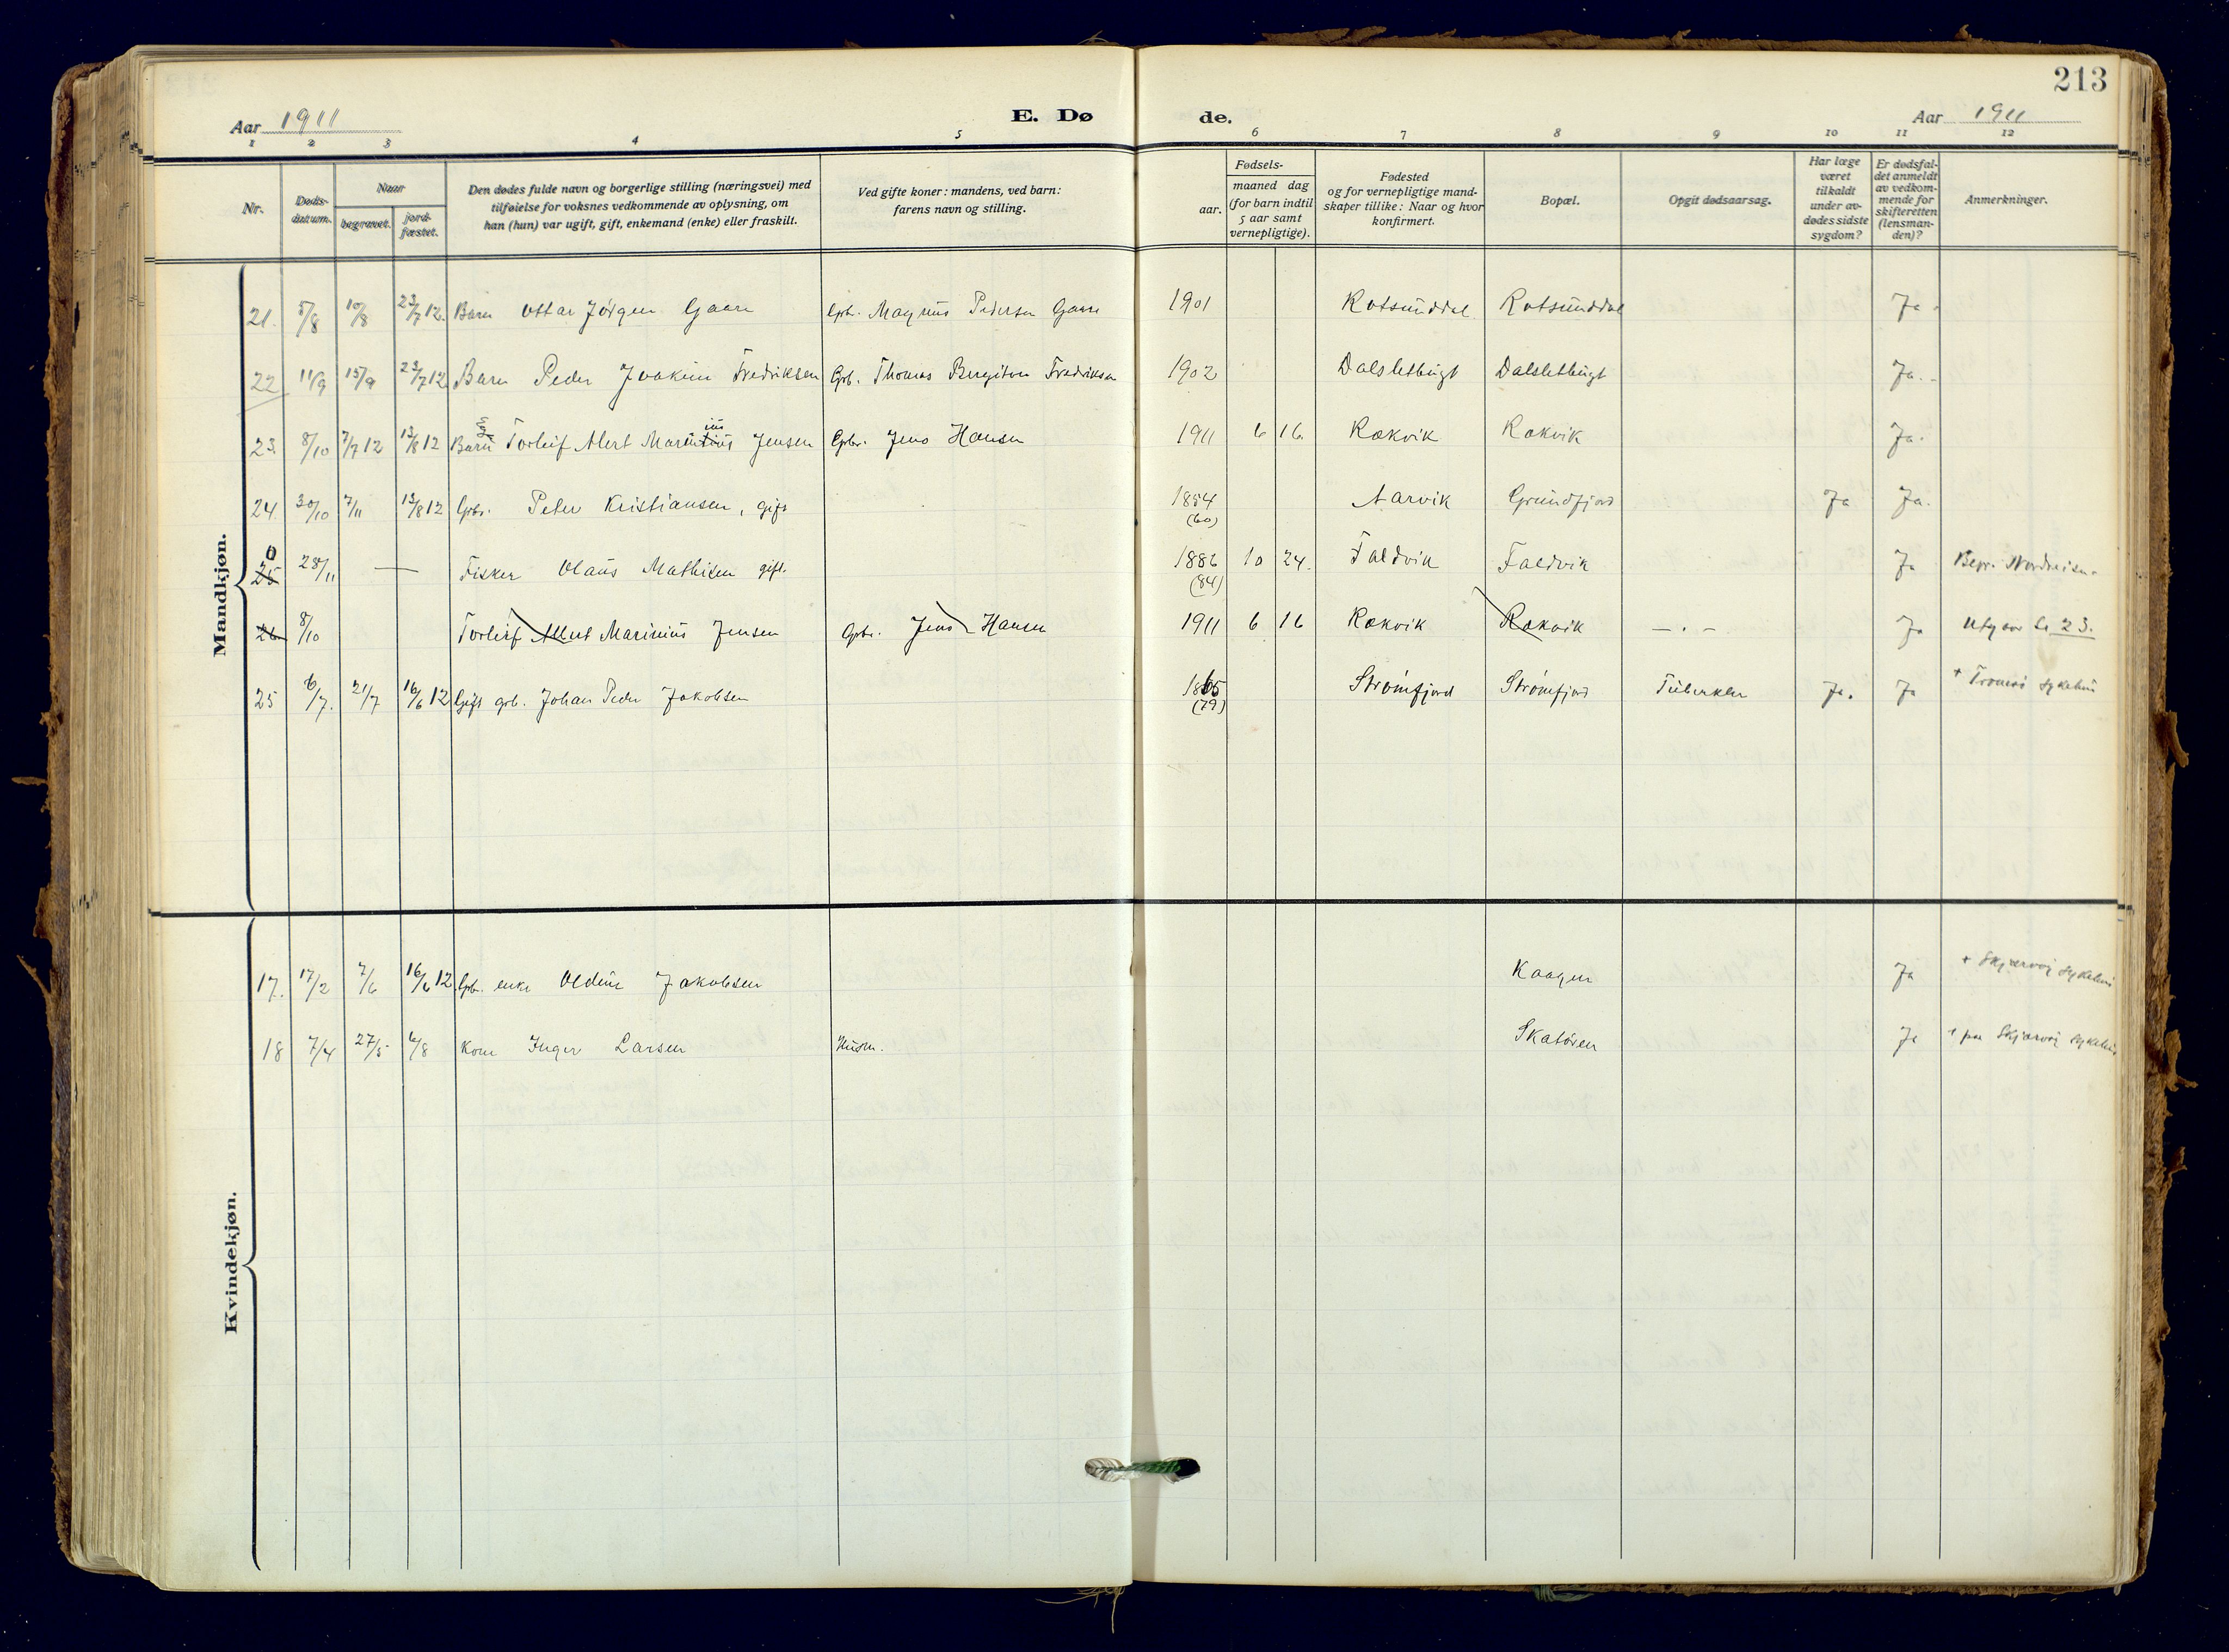 213
Aar 1911
E. Dø
de.
Aar 1911
1 2 3 4 5 6 7 8 9 10 11 12
Nr.
Døds-
datum.
Naar
begravet.
jord-
fæstet.
Den dødes fulde navn og borgerlige stilling (næringsvei) med
tilføielse for voksnes vedkommende av oplysning, om
han (hun) var ugift, gift, enkemand (enke) eller fraskilt.
Ved gifte koner: mandens, ved barn:
farens navn og stilling.
Fødsels-
aar.
maaned dag
(for barn indtil
5 aar samt
vernepligtige).
Fødested
og for vernepligtige mand-
skaper tillike: Naar og hvor
konfirmert.
Bopæl.
Opgit dødsaarsag.
Har læge
været
tilkaldt
under av-
dødes sidste
sygdom?
Er dødsfal-
det anmeldt
av vedkom-
mende for
skifteretten
(lensman-
den)?
Anmerkninger.
Mandkjøn.
21. 5/8 10/8 23/7 12. Barn Ottar Jörgen Gaare Gpb. Magnus Pedersen Gaare 1901 Rotsunddal Rotsunddal Ja.
22 11/9 15/9 23/7 12 Barn Peder Joakim Fredriksen Gpb. Thomas Bergiton Fredriksen 1902 Dalsletbugt Dalsletbugt Ja.
23. 8/10 7/7 12 13/8 12 Barn Torleif Alert Marinius Jensen Gpbr. Jens Hansen 1911 6 16. Rækvik Rækvik Ja.
24. 30/10 7/11 13/8 12 Gpbr. Peter Kristiansen, gift 1854 (60) Aarvik Grundfjord Ja Ja.
0 25 28/11 — Fisker Olaus Mathisen gift. 1886 (84) 10 24. Taldvik Taldvik Ja Bepr. Nordreisa.
26 8/10 Torleif Albert Marinius Jensen Gpbr. Jens Hansen 1911 6 16 Rækvik Rækvik — . — Ja Utgaar Se 23.
25 6/7. 21/7 16/6 12 Gift gpb. Johan Peder Jakobsen 1865 (79) Strömfjord Strömfjord Tuberkler Ja. Ja + Tromsö sykehus
Kvindekjøn.
17. 17/2 7/6 16/6 12 Gpb. enke Oldine Jakobsen Kaagen Ja + Skjærvöy sykehus
18 7/4 27/5 6/8 Kone Inger Larsen Husm. Skatören Ja + paa Skjærvöy sykehus